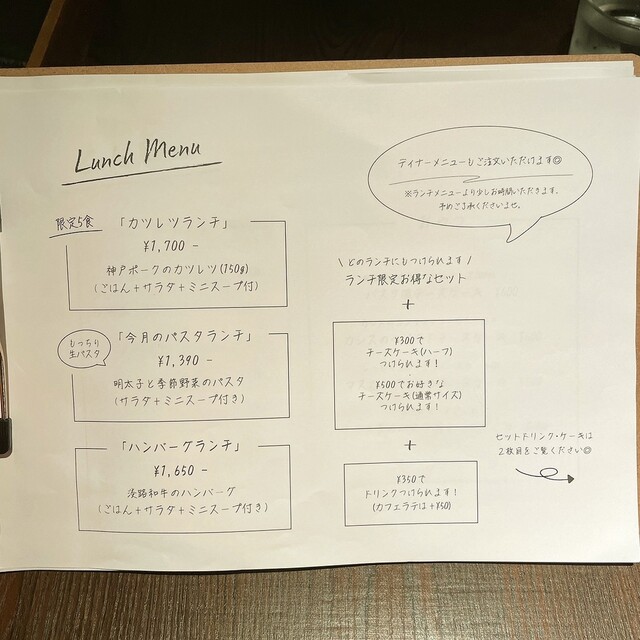 Lunch Menu
ディナーメニューもご注文いただけます◎
※ランチメニューより少しお時間いただきます。
予めご了承くださいませ。
限定5食
「カツレツランチ」
¥1,700 -
神戸ポークのカツレツ(150g)
(ごはん+サラダ+ミニスープ付)
もっちり
生パスタ
「今月のパスタランチ」
¥1,390 -
明太子と季節野菜のパスタ
(サラダ+ミニスープ付き)
「ハンバーグランチ」
¥1,650 -
淡路和牛のハンバーグ
(ごはん+サラダ+ミニスープ付き)
\ どのランチにもつけられます /
ランチ限定お得なセット
+
¥300で
チーズケーキ(ハーフ)
つけられます!
¥500でお好きな
チーズケーキ(通常サイズ)
つけられます!
+
¥350で
ドリンクつけられます!
(カフェラテは+¥50)
セットドリンク・ケーキは
2枚目をご覧ください◎